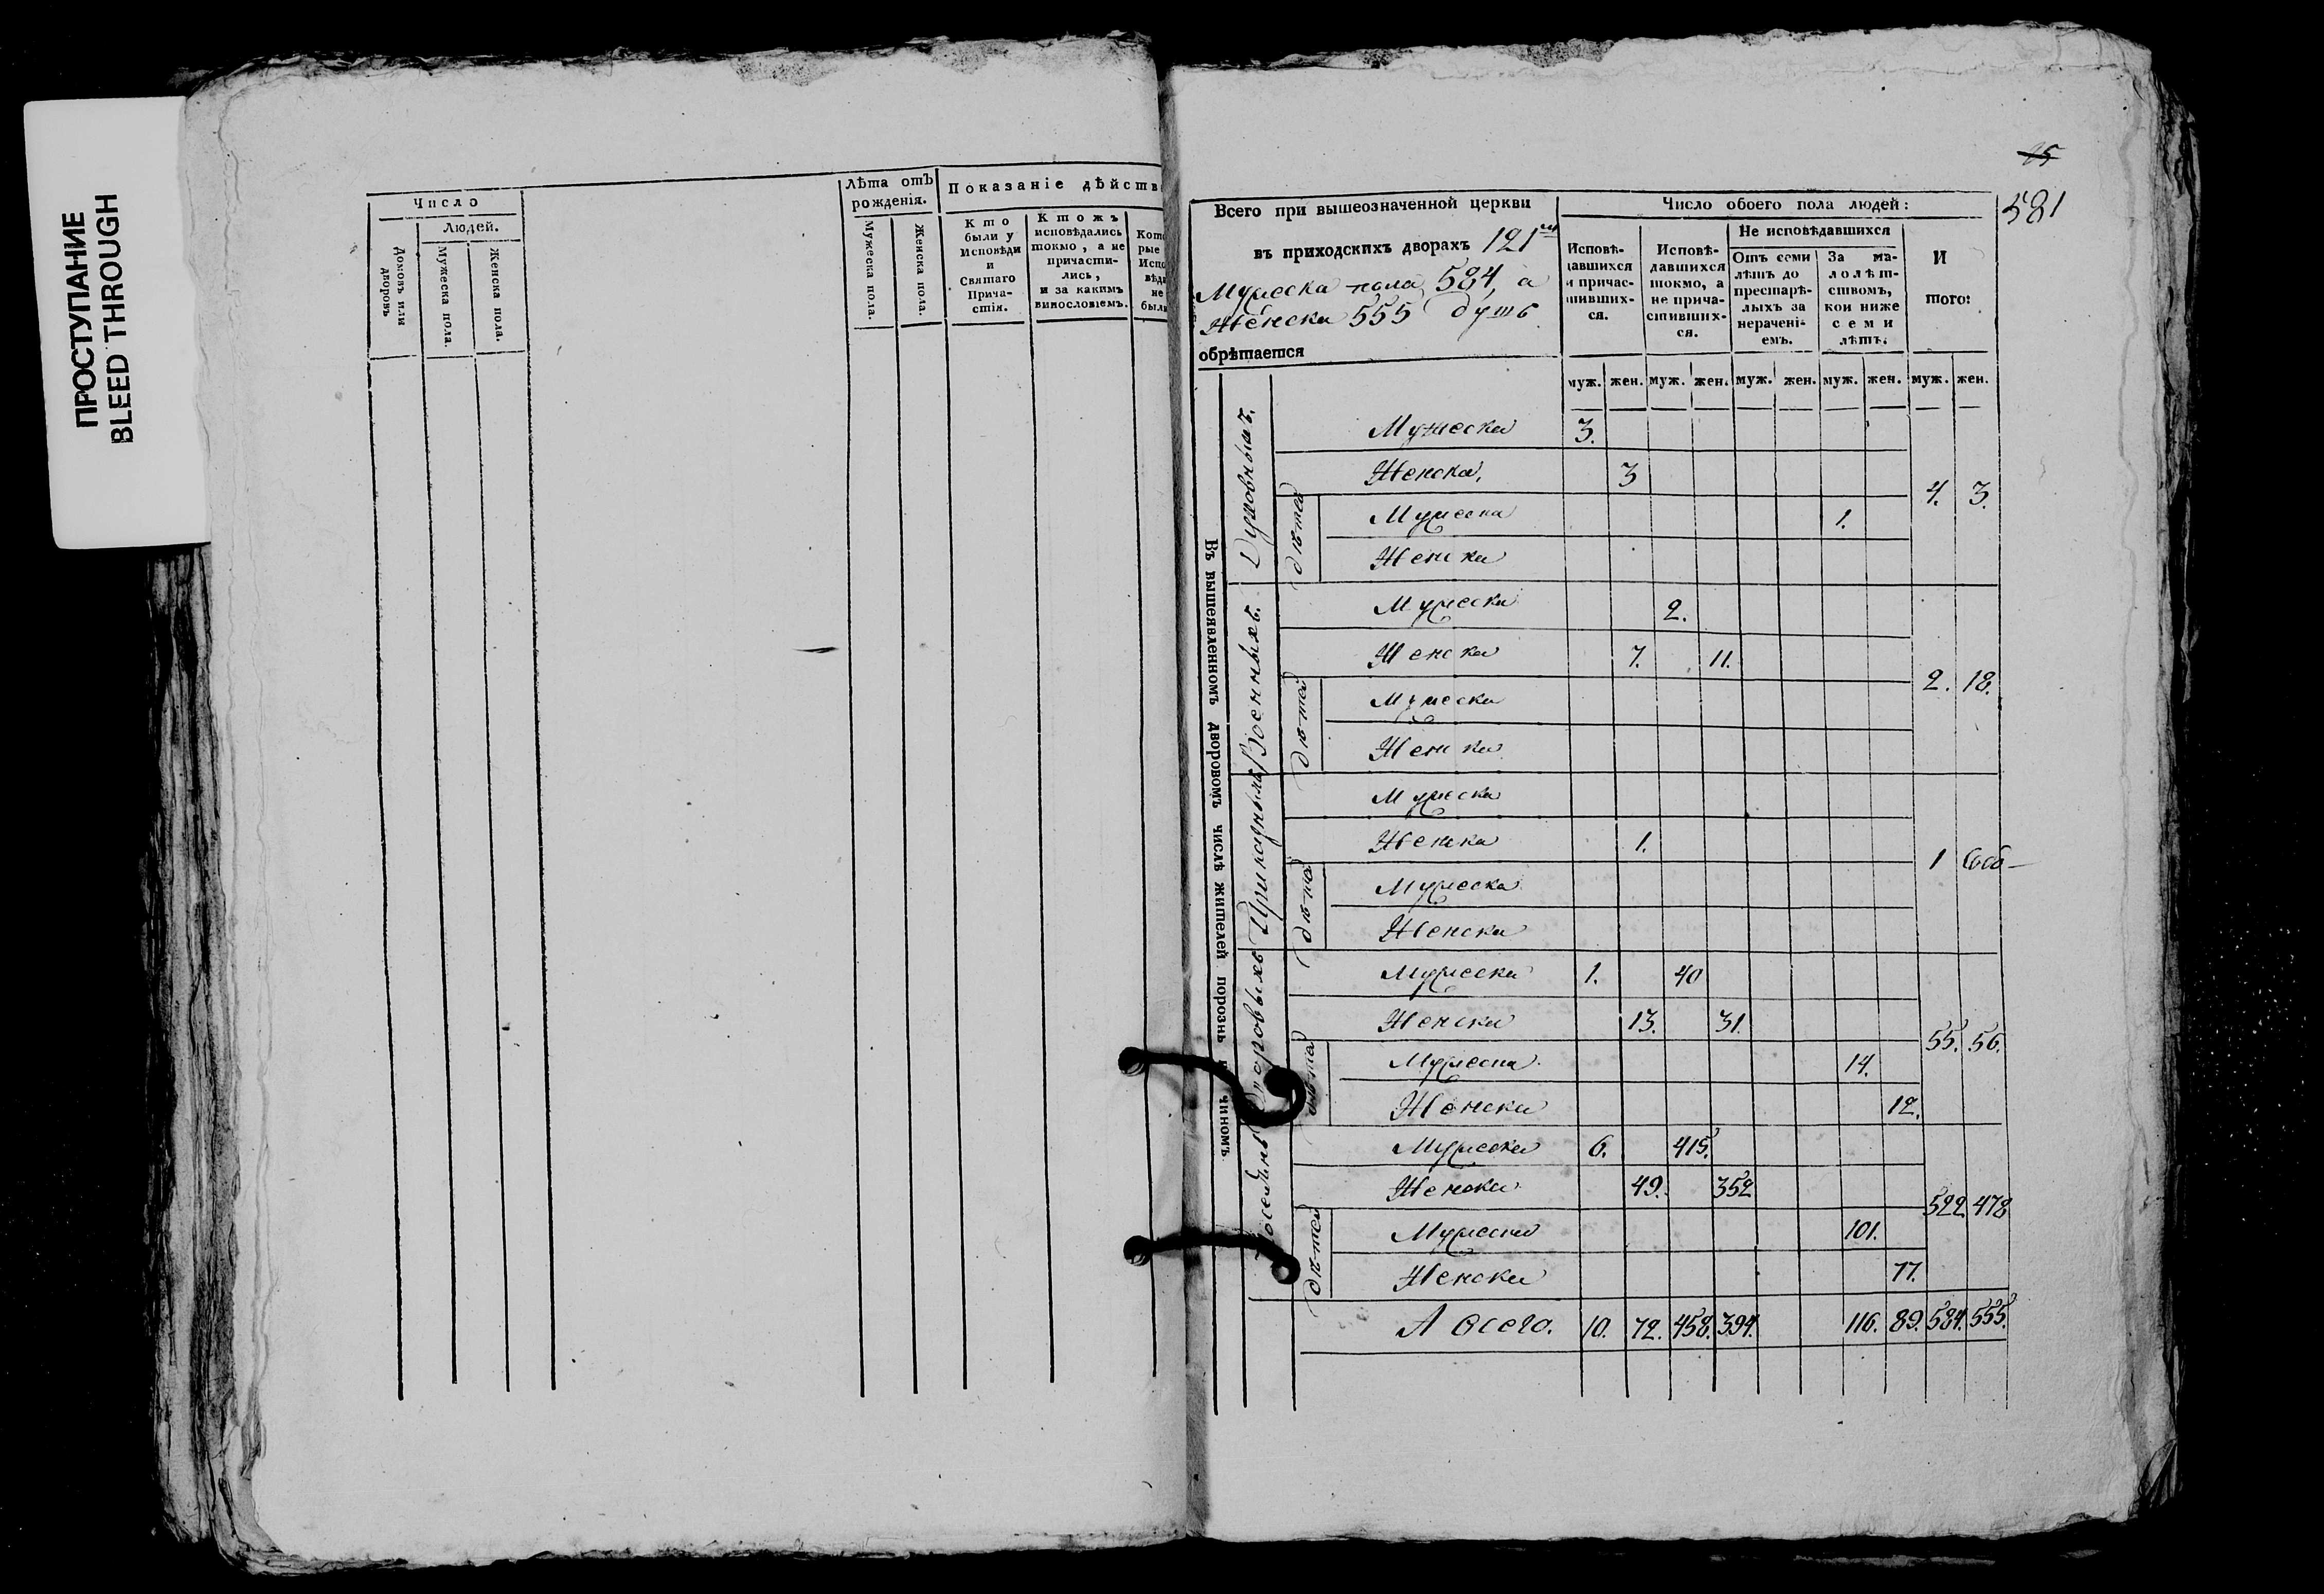 ПРОСТУПАНИЕ
BLEED THROUGH
Число
Людей.
Домовъ или дворовъ
Мужеска пола.
Женска пола.
Лѣта отъ рожденія.
Мужеска пола.
Женска пола.
Показаніе дѣйств
Кто
были у
Исповѣди
и
Святаго
Прича-
стія.
Ктожъ
исповѣдались
токмо, а не
причасти-
лись,
и за какимъ
винословіемъ.
Кото
рые
Испо
вѣд
не
был
25
581
Всего при вышеозначенной церкви
въ приходскихъ дворахъ 121
Мужеска пола 584, а
Женска 555 душъ
обрѣтается
Число обоего пола людей:
Исповѣ-
давшихся
и причас-
тивших-
ся.
Исповѣ-
давшихся
токмо, а
не прича-
стивших-
ся.
Не исповѣдавшихся
Отъ семи
лѣтъ до
престарѣ-
лыхъ за
нерачені-
емъ.
За ма-
лолѣт-
ствомъ,
кои ниже
семи
лѣтъ.
И
того:
муж. жен. муж. жен. муж. жен. муж. жен. муж. жен.
Въ вышеявленномъ дворовомъ числѣ жителей порознь чиномъ
Духовныхъ.
Мужеска 3.
Женска 3
4. 3.
дѣтей
Мужеска 1.
Женска
Военныхъ.
Мужеска 2.
Женска 7. 11.
2. 18.
дѣтей
Мужеска
Женска
Приказныхъ
Мужеска
Женска 1.
1
дѣтей
Мужеска
Женска
Дворовыхъ
Мужеска 1. 40
Женска 13. 31.
55. 56.
дѣтей
Мужеска 14.
Женска 12.
Поселянъ
Мужеска 6. 415.
Женска 49. 352
522 478
дѣтей
Мужеска 101.
Женска 77.
А всего. 10. 72. 458. 394. 116. 89. 584. 555.